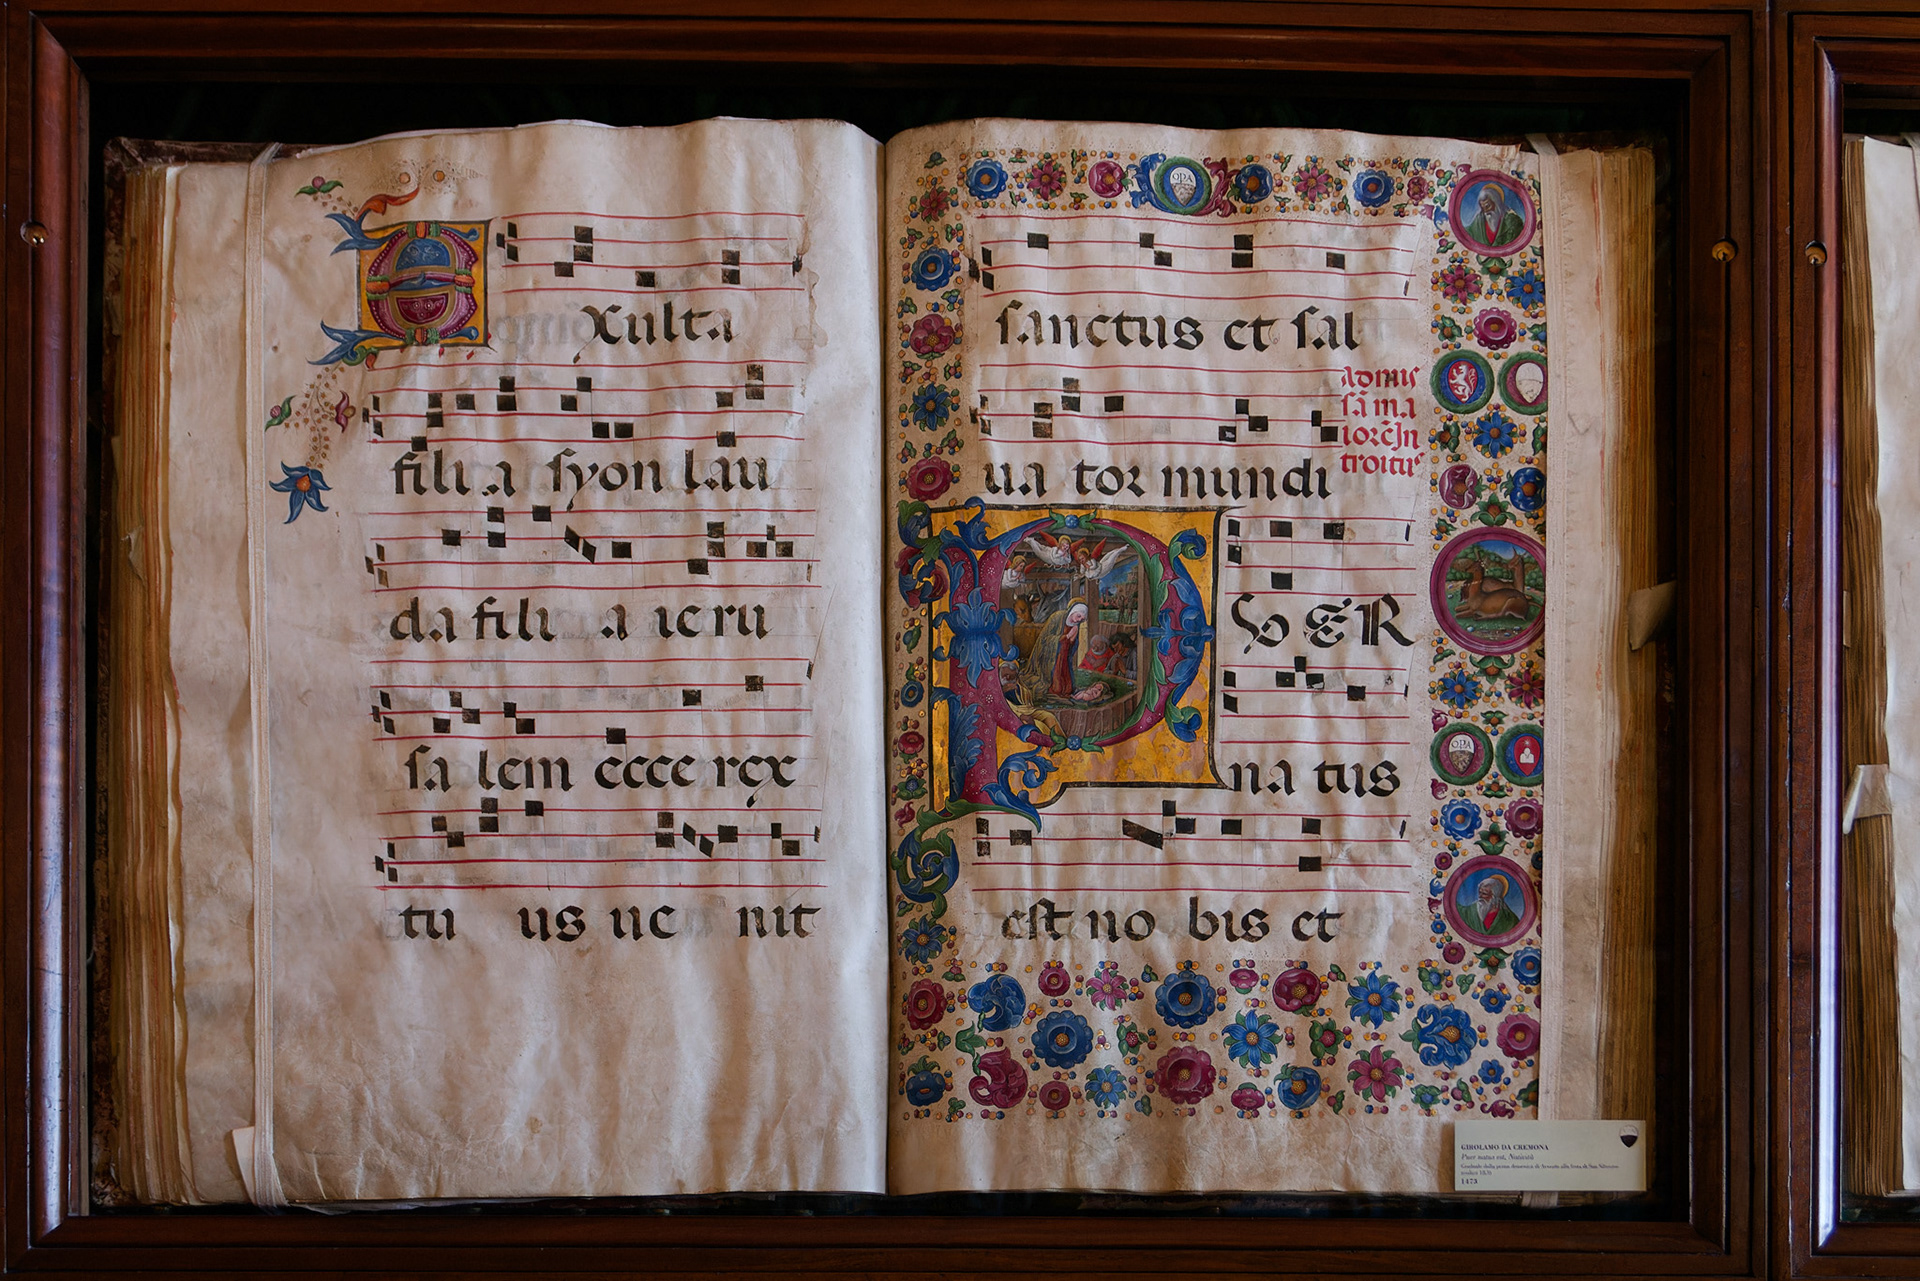 Exulta
fili a syon lau
da fili a ieru
sa lem ecce rex
tu us ue nit
OPA
sanctus et sal
ua tor mundi
admis
sā ma
iorē In
troitus
PVER
na tus
OPA
est no bis et
GIROLAMO DA CREMONA
Puer natus est, Natività
Graduale dalla prima domenica di Avvento alla festa di San Silvestro
1473